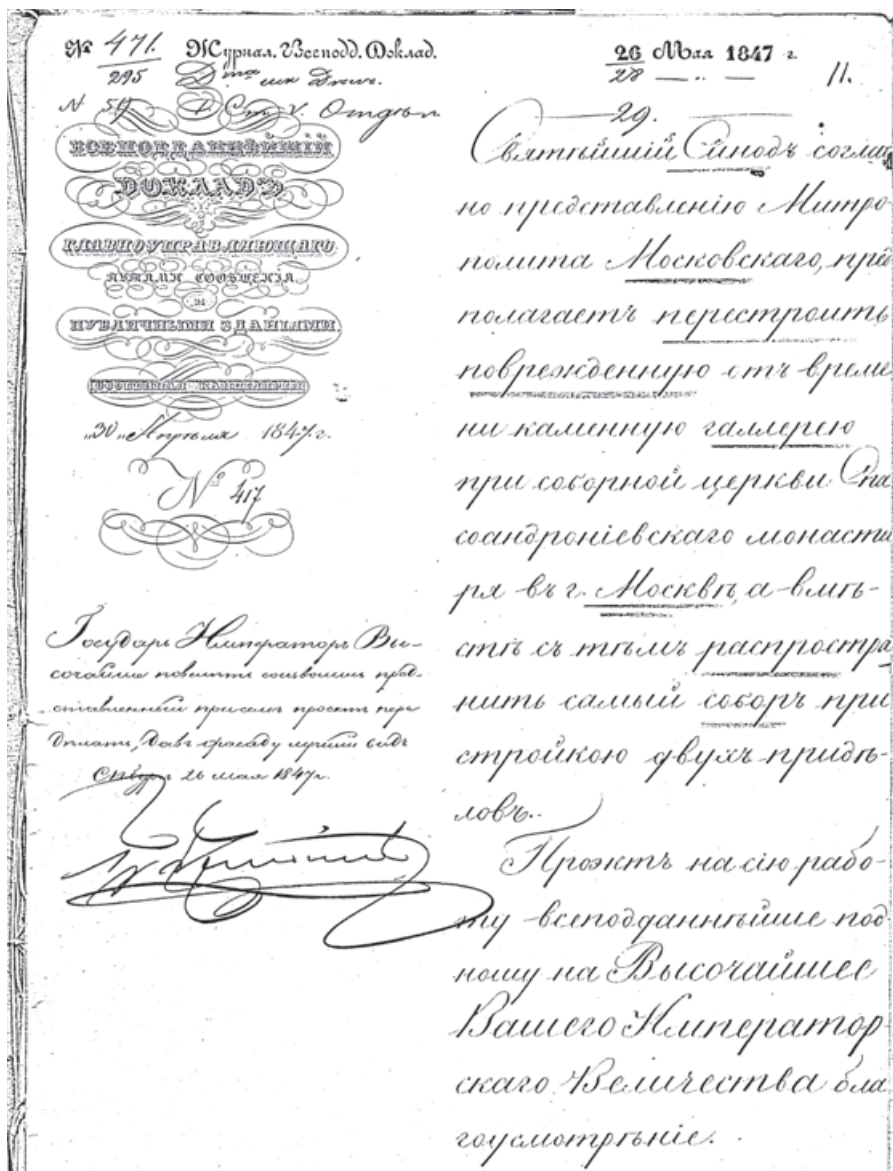 № 471. Журнал. Всеподд. Доклад.
295
N 50
ВСЕПОДДАННѢЙШІЙ
ДОКЛАДЪ
ГЛАВНОУПРАВЛЯЮЩАГО
ПУТЯМИ СООБЩЕНІЯ
И
ПУБЛИЧНЫМИ ЗДАНІЯМИ.
„30„ Апрѣля 1847 г.
№ 417
Государь Императоръ Вы-
сочайше повелѣть соизволилъ пред-
ставленный при семъ проектъ пере
дѣлать, давъ фасаду лучшій видъ
26 мая 1847 г.
26 Мая 1847 г.
28 — „ —
11.
29.
Святѣйшій Сѵнодъ соглас
но представленію Митро-
полита Московскаго, пред
полагаетъ перестроить
поврежденную отъ време
ни каменную галлерею
при соборной церкви Спа
соандроніевскаго монасты
ря въ г. Москвѣ, а вмѣ-
стѣ съ тѣмъ распростра
нить самый соборъ при
стройкою двухъ придѣ-
ловъ.
Проэктъ на сію рабо-
ту всеподданнѣйше под
ношу на Высочайшее
Вашего Император
скаго Величества бла
гоусмотрѣніе.